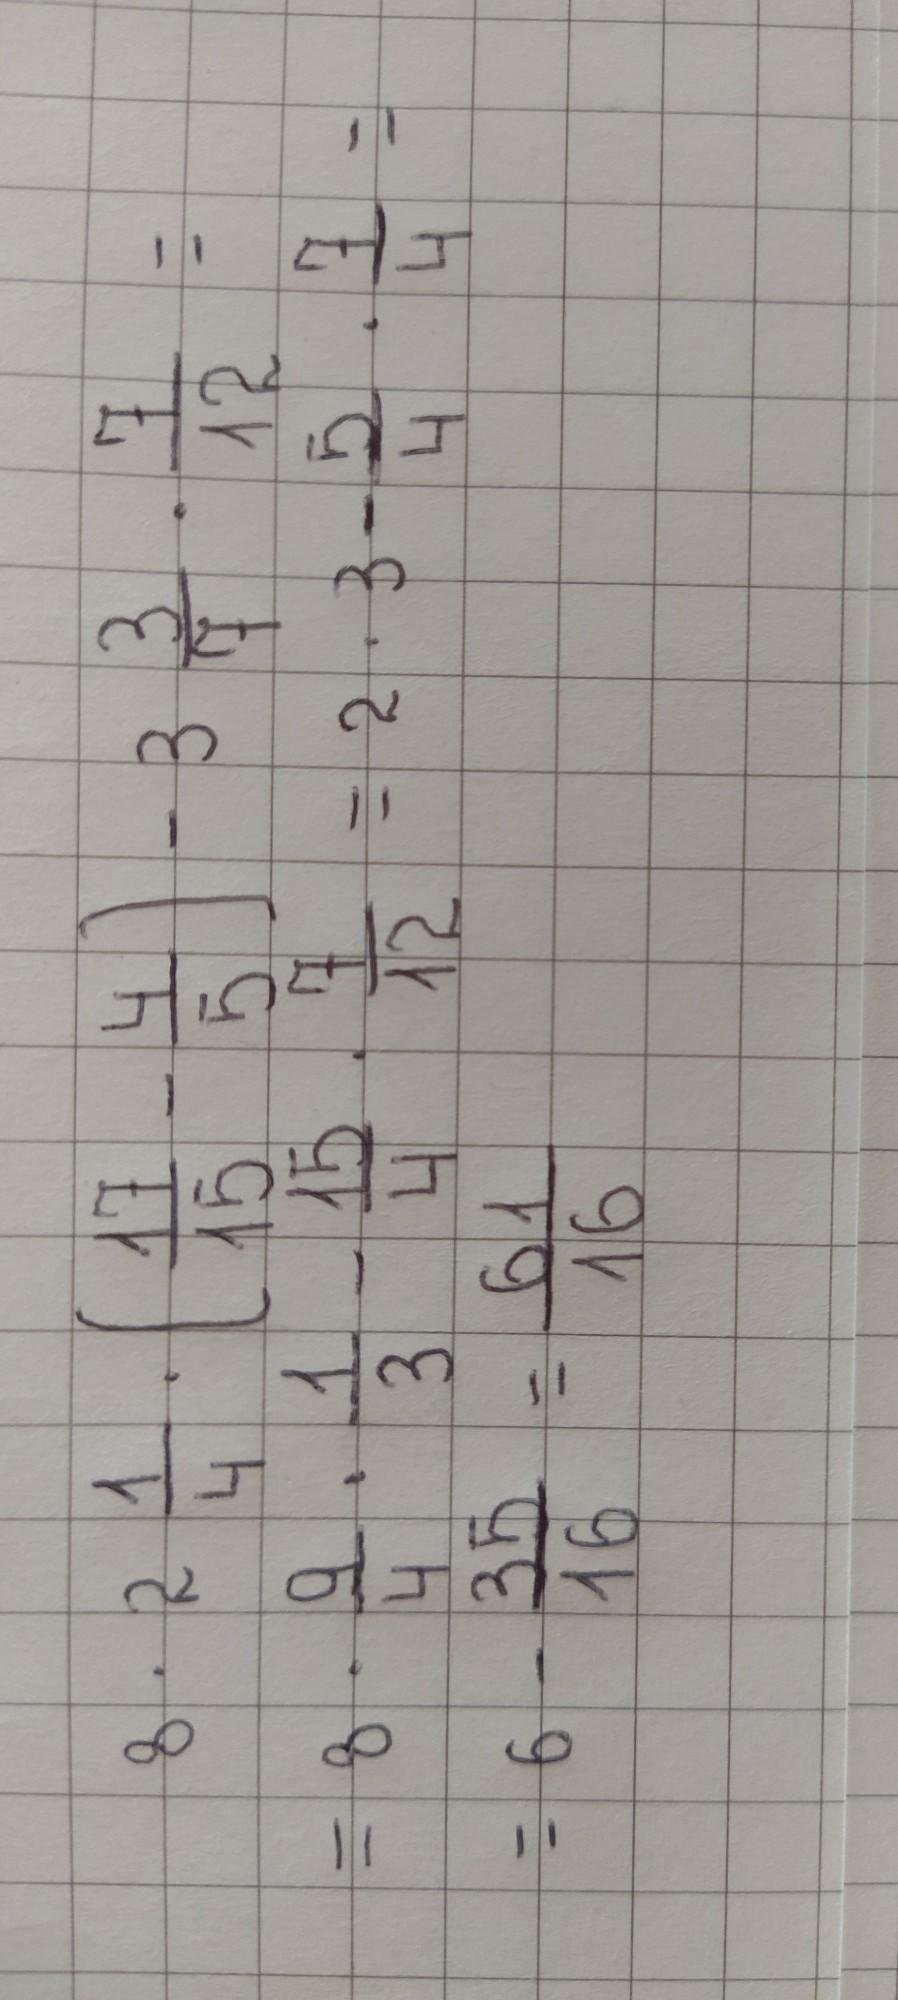 8 · 2 1/4 · (17/15 - 4/5) - 3 3/4 · 7/12 =
= 8 · 9/4 · 1/3 - 15/4 · 7/12 = 2 · 3 - 5/4 · 7/4 =
= 6 - 35/16 = 61/16